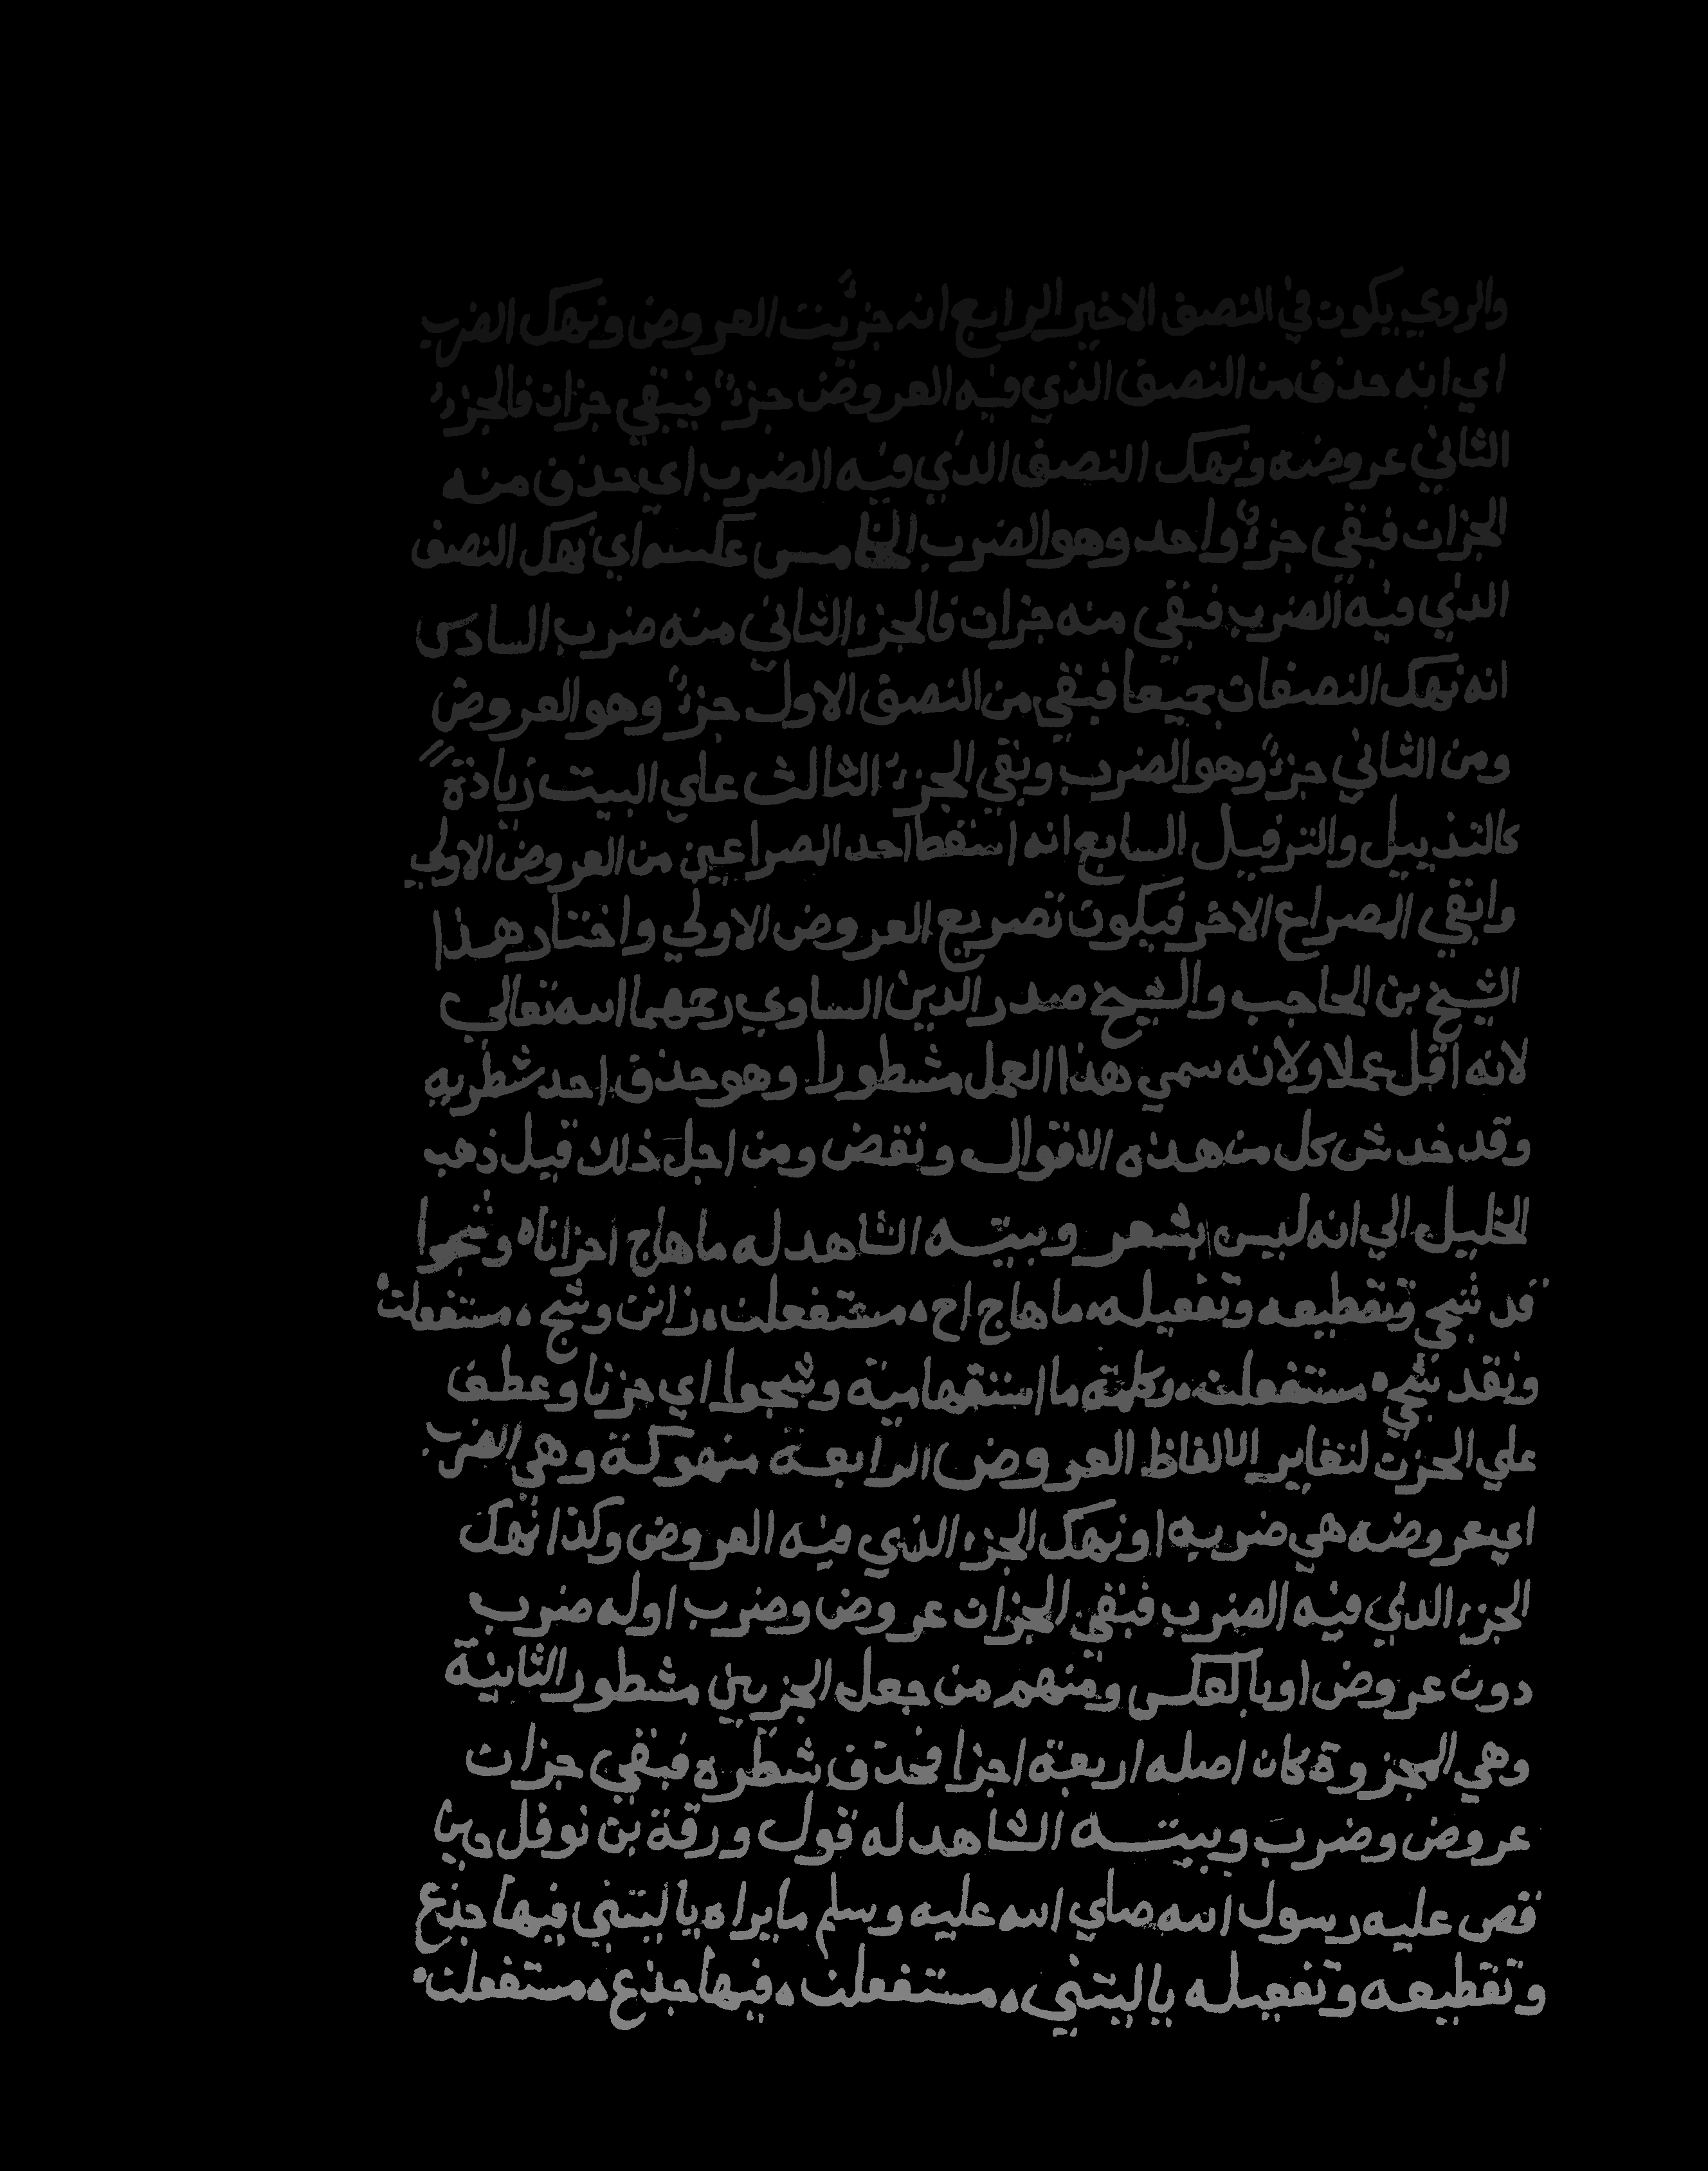 والروي يكون في النصف الاخير الرابع انه جزيت العروض ونهك الضرب
اي انه حذف من النصف الذي فيه العروض جزء فيبقي جزان فالجزء
الثاني عروضه ونهك النصف الذي فيه الضرب اي حذف منه
الجزان فبقي جزء واحد وهو الضرب الخامس عكسه اي نهك النصف
الذي فيه الضرب فبقي منه جزان فالجزء الثاني منه ضرب السادس
انه نهك النصفان جميعا فبقي من النصف الاول جزء وهو العروض
ومن الثاني جزء وهو الضرب وبقي الجزء الثالث علي البيت زيادة
كالتذييل والترفيل السابع انه اسقط احد المصراعين من العروض الاولي
وابقي المصراع الاخر فيكون تصريع العروض الاولي واختار هذا
الشيخ بن الحاجب والشيخ صدر الدين الساوي رحمهما الله تعالي
لانه اقل عملا ولانه سمي هذا العمل مشطورا وهو حذف احد شطريه
وقد خدش كل من هذه الاقوال ونقض ومن اجل ذلك قيل ذهب
الخليل الي انه ليس بشعر وبيته الشاهد له ما هاج احزانا وشجوا
قد شجي وتقطيعه وتفعيله ما هاج اح مستفعلن زانن وشج مستفعلن
ونقد شجي مستفعلن وكلمة ما استفهامية وشجوا اي حزنا وعطف
علي الحزن لتغاير الالفاظ العروض الرابعة منهوكة وهي الضرب
اي عروضه هي ضربه او نهك الجزء الذي فيه العروض وكذا نهك
الجزء الذي فيه الضرب فبقي الجزان عروض وضرب اوله ضرب
دون عروض او بالعكس ومنهم من جعل الجزيين مشطور الثانية
وهي المجزوة كان اصله اربعة اجزا فحذف شطره فبقي جزان
عروض وضرب وبيته الشاهد له قول ورقة بن نوفل حين
قص عليه رسول الله صلي الله عليه وسلم ما يراه يا ليتني فيها جذع
وتقطيعه وتفعيله يا ليتني مستفعلن فيها جذع مستفعلن